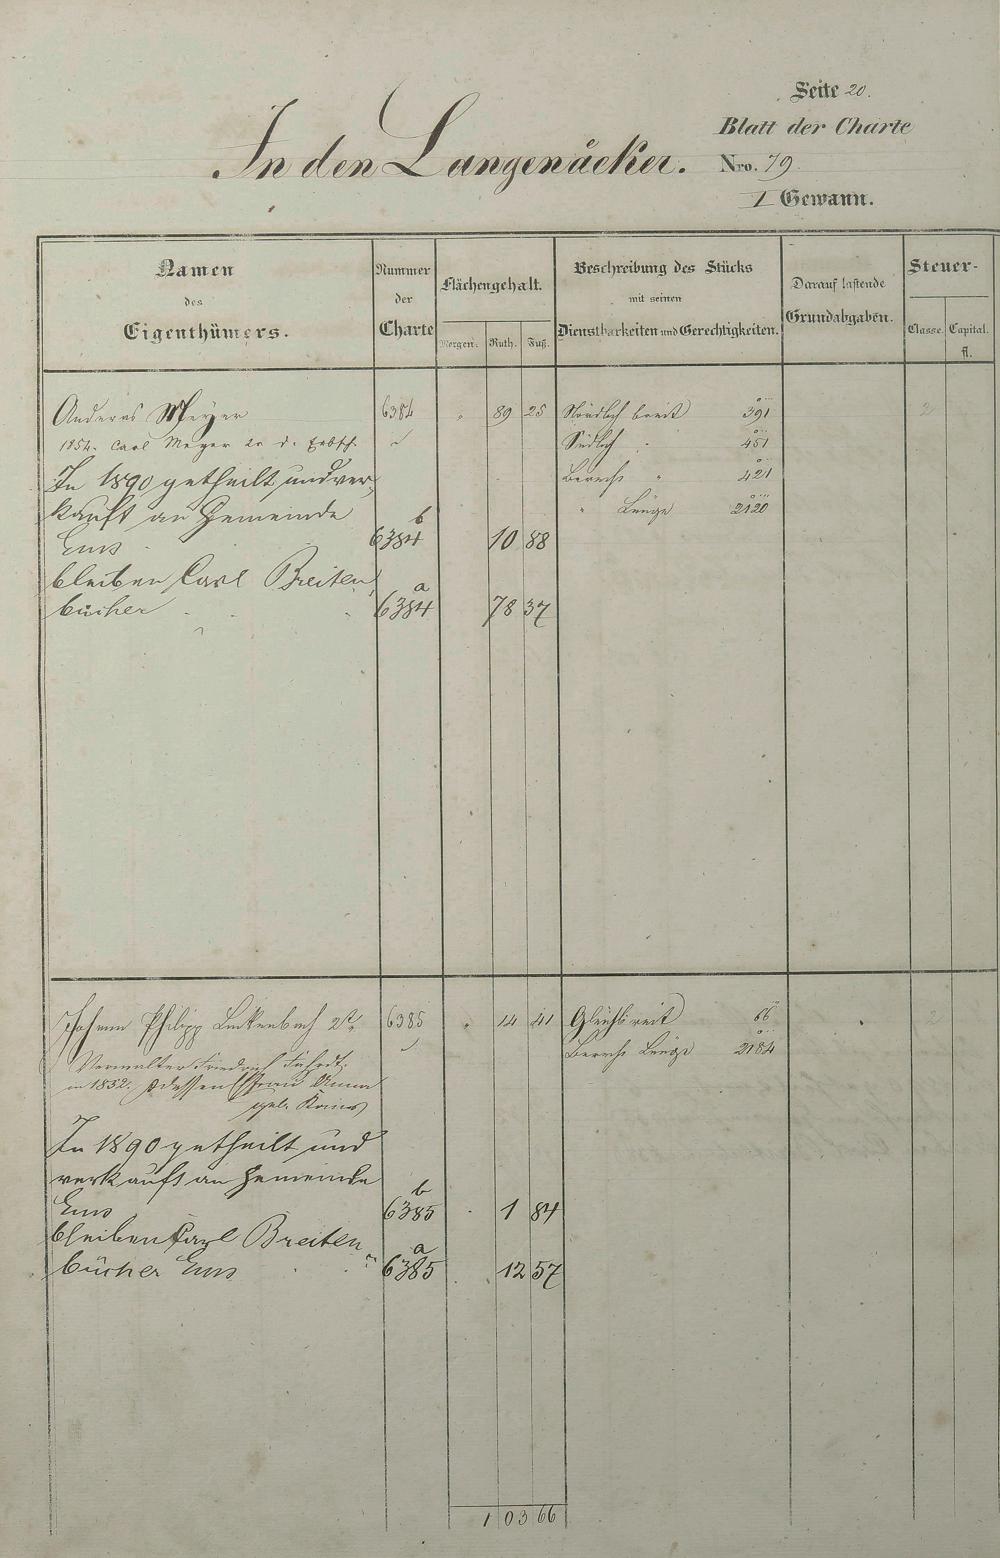 Seite 20.
Blatt der Charte
In den Langenäcker. Nro. 79.
I Gewann.
Namen des Eigenthümers.
Nummer der Charte
Flächengehalt.
Morgen. Ruth. Fuß.
Beschreibung des Stücks mit seinen Dienstbarkeiten und Gerechtigkeiten.
Darauf lastende Grundabgaben.
Steuer-
Classe. Capital. fl.
Anderas Meyer 6384 89 25 Nördlich breit 391
1854. Carl Meyer in d. Erbsch. Südlich 451
In 1890 getheilt und ver- Berechn. " 421
kauft an Gemeinde " Länge 2120
Ems 6384 b 10 88
bleiben Carl Breiten-
bücher 6384 a 78 37
Johann Philipp Linkenbach 2t 6385 14 41 Gleichbreit 66 2
Berechn. Länge 2184
Verwalter Friedrich
in 1852. dessen Ehefrau Anna
geb.
In 1890 getheilt und
verkauft an Gemeinde
Ems 6385 b 1 84
bleiben Carl Breiten-
bücher Ems 6385 a 12 57
1 03 66